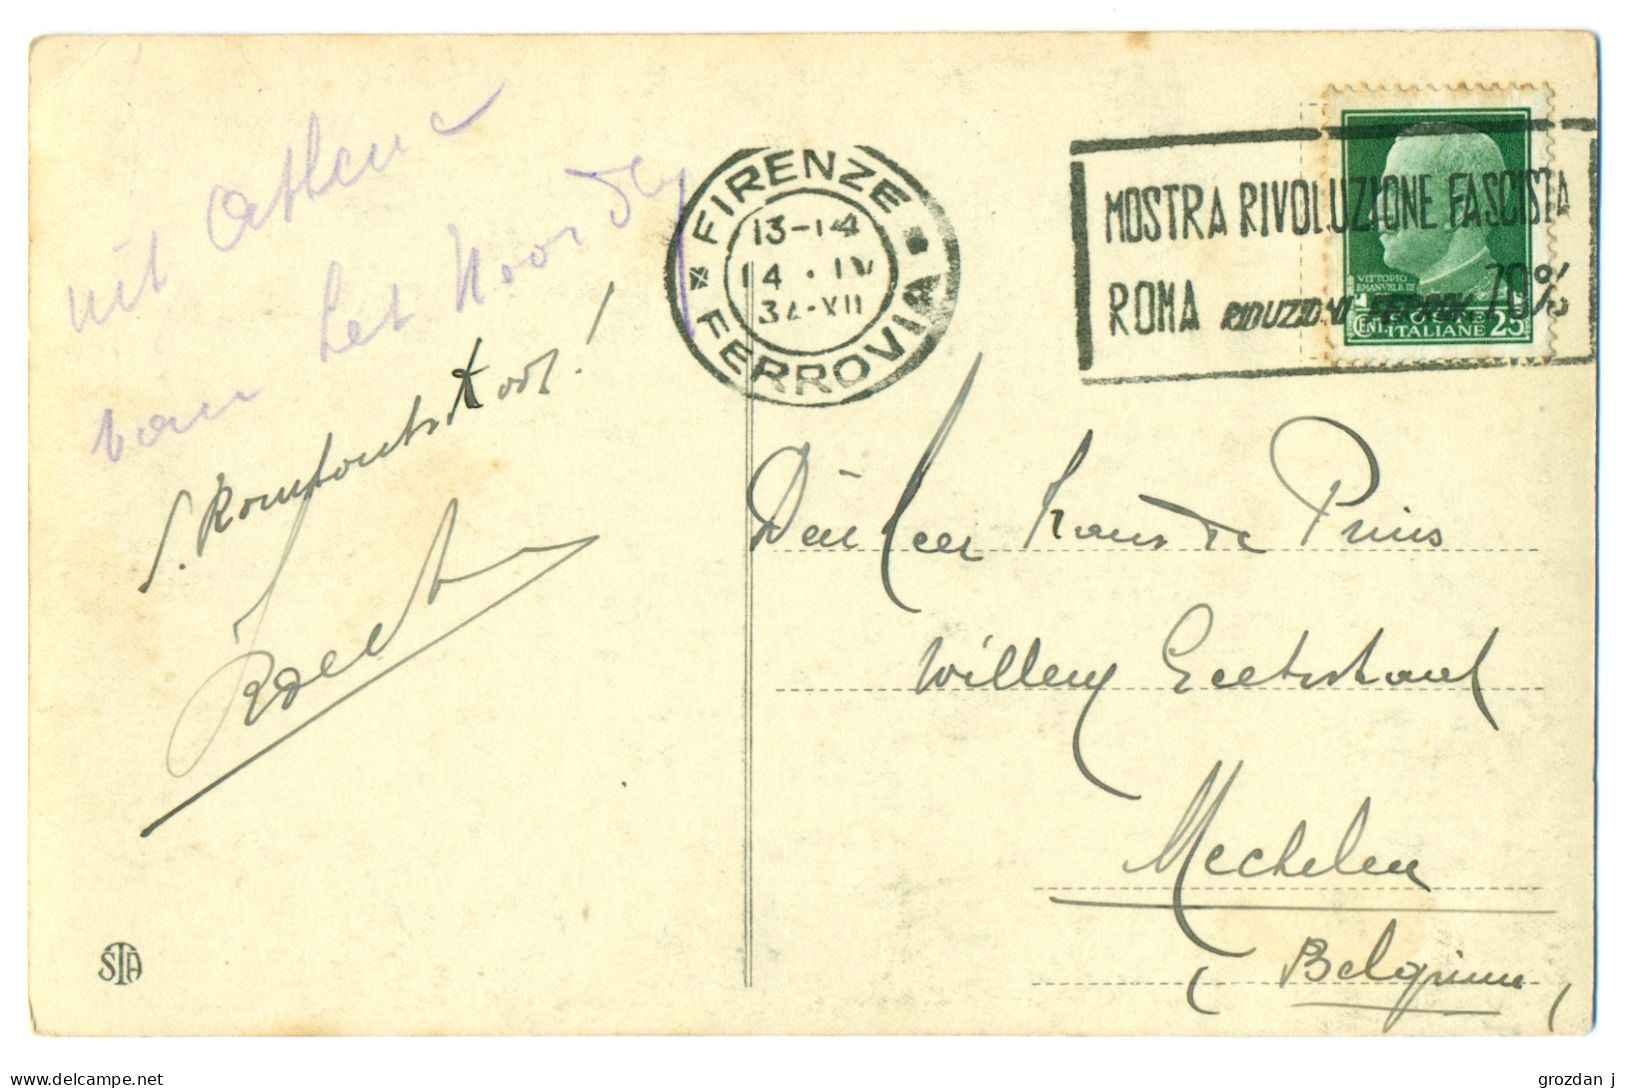 uit Athene
van het Noorden
S. Romboutskoor!
FIRENZE
13-14
14 · IV
34-XII
FERROVIA
MOSTRA RIVOLUZIONE FASCISTA
ROMA RIDUZIONI FERROV. 70%
VITTORIO
EMANVELE III
POSTE
CENT. ITALIANE 25
Den Heer Kan. De Prins
Willem
Mechelen
(Belgium)
STA
delcampe.net
grozdan j